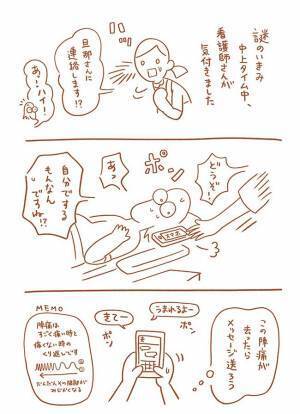 謎のいまみ
中上タイム中、
看護師さんが
気付きました
旦那さんに
連絡します!?
あ…ハイ!
どうぞ…
ポン
あっ
自分でする
もんなん
ですね!?
この陣痛が
去ったら
メッセージ送ろう
うまれるよー
ポン
きてー
ポン
MEMO
陣痛は
すごく痛い時と
痛くない時の
くり返しです
だんだんその間隔が
みじかくなる